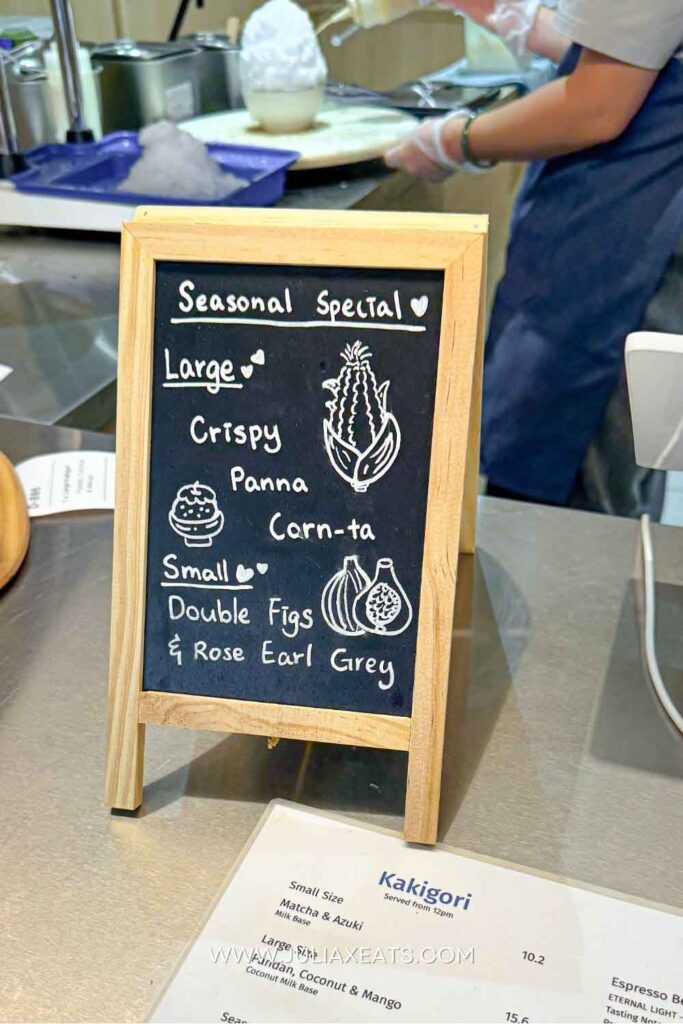 Seasonal Special
Large
Crispy
Panna
Corn-ta
Small
Double Figs
& Rose Earl Grey
Kakigori
Served from 12pm
Small Size
Matcha & Azuki
Milk Base
10.2
Large Size
Pandan, Coconut & Mango
Coconut Milk Base
15.6
Espresso
ETERNAL LIGHT
WWW.JULIAXEATS.COM